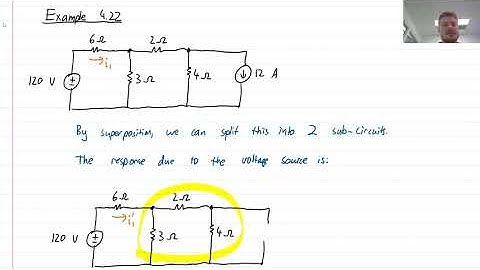 Example 4.22
6Ω 2Ω
i₁
120 V 3Ω 4Ω 12 A
By superposition, we can split this into 2 sub-circuits.
The response due to the voltage source is:
6Ω 2Ω
i₁'
120 V 3Ω 4Ω